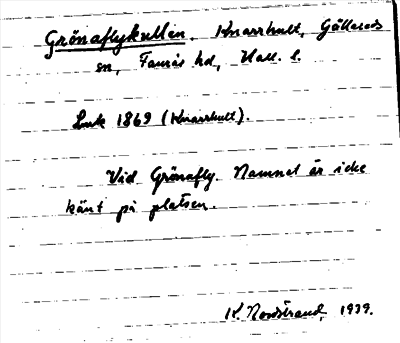 Grönaflykullen. Knarrhult, Gällareds
sn, Faurås hd, Hall. l.
Lmk 1869 (Knarrhult).
Vid Grönafly. Namnet är icke
känt på platsen.
K. Nordstrand, 1939.